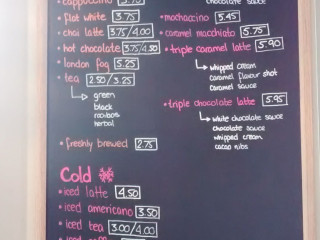 cappuccino 3.75
flat white 3.75
chai latte 3.75/4.00
hot chocolate 3.75/4.50
london fog 5.25
tea 2.50/3.25
green
black
rooibos
herbal
freshly brewed 2.75
Cold
iced latte 4.50
iced americano 3.50
iced tea 3.00/4.00
iced
chocolate sauce
mochaccino 5.45
caramel macchiato 5.75
triple caramel latte 5.90
whipped cream
caramel flavour shot
caramel sauce
triple chocolate latte 5.95
white chocolate sauce
chocolate sauce
whipped cream
cacao nibs